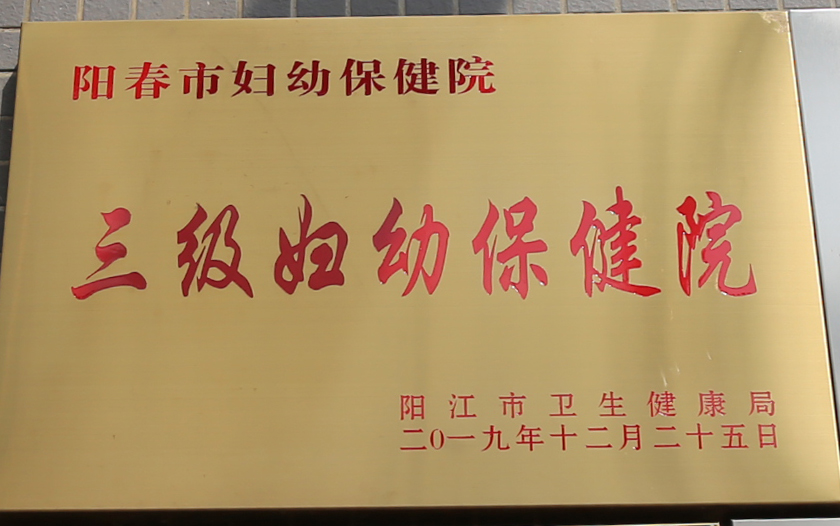 阳春市妇幼保健院
三级妇幼保健院
阳江市卫生健康局
二0一九年十二月二十五日